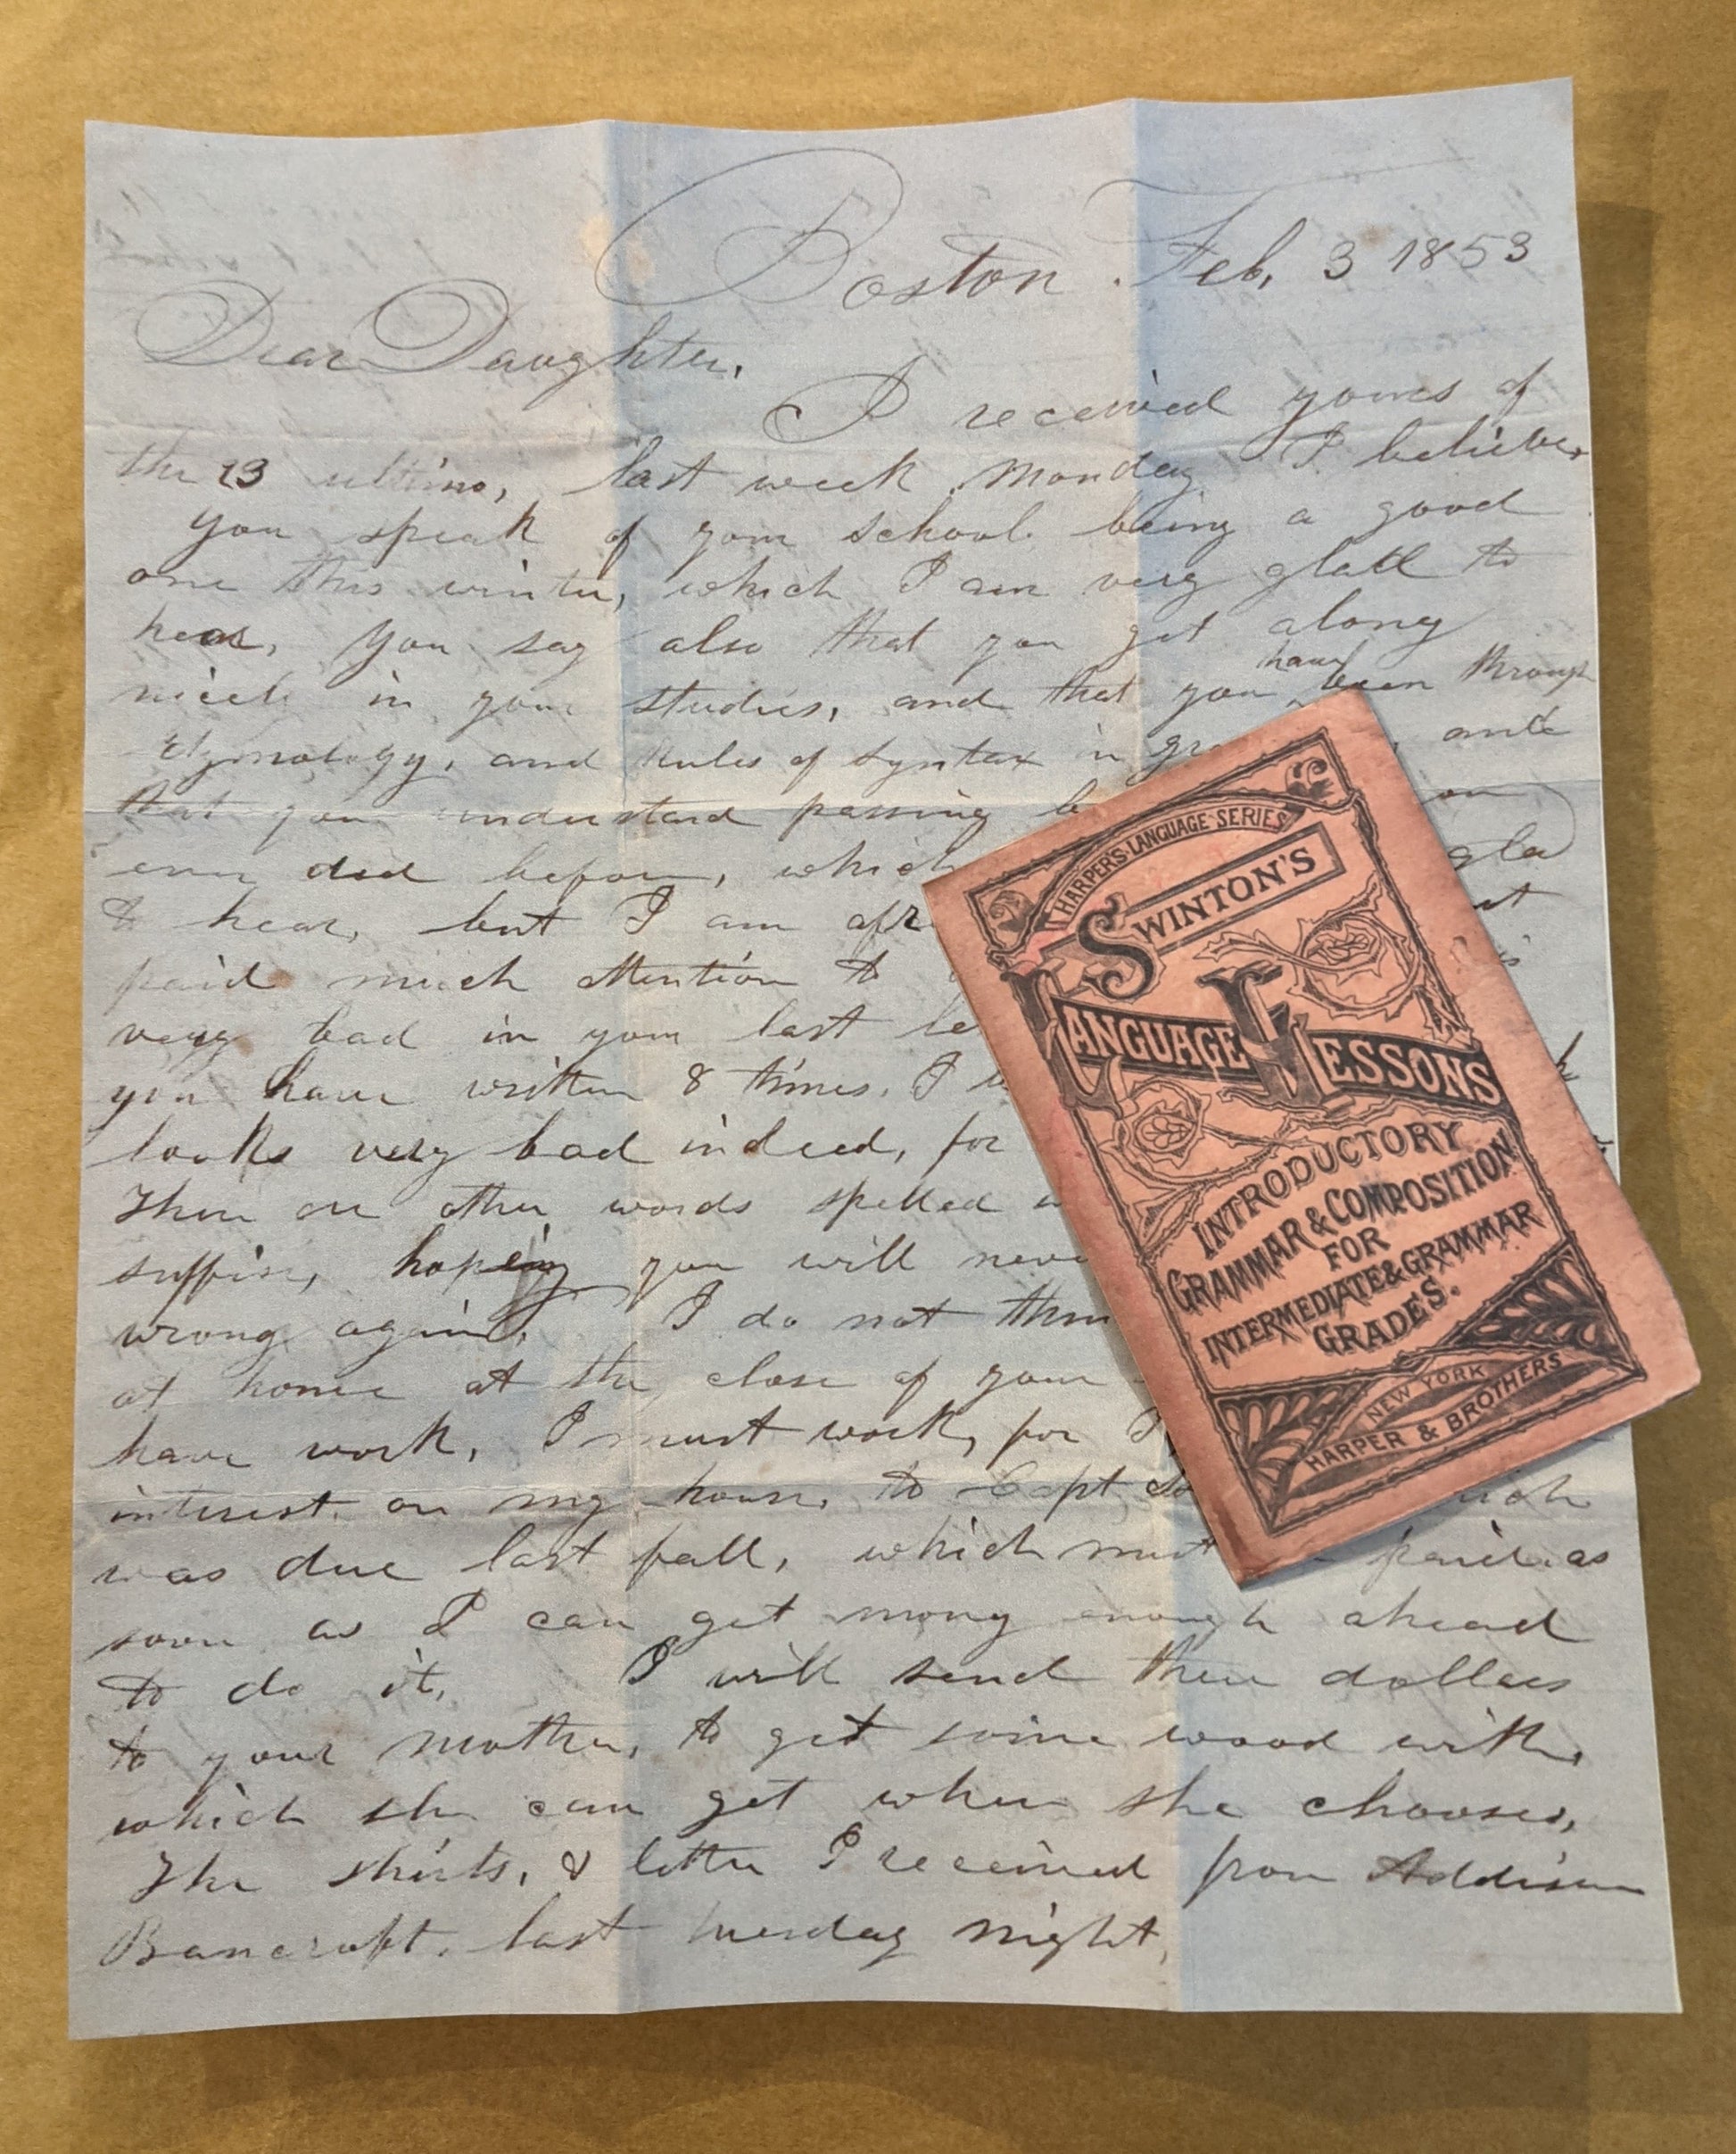 Boston. Feb, 3 1853
Dear Daughter,
I received yours of
the 23 ultimo, last week Monday I believe,
You speak of your school being a good
one this winter, which I am very glad to
hear, You say also that you get along
have
nicely in your studies, and that you been through
Etymology, and Rules of Syntax in gr and
that you understand parsing b
ever did before, which gla
to hear, but I am afr
paid much attention to
very bad in your last le
you have written 8 times. I
looks very bad indeed, for
There are other words spelled
suffise, hopeing you will neve
wrong again, I do not thin
at home at the close of your
have work, I must work, for I
interest on my house, to Capt
was due last fall, which must paid as
soon as I can get mony enough ahead
to do it, I will send three dollars
to your mother, to get some wood with,
which she can get when she chooses,
The shirts, & letter I received from Addison
Bancroft. last tuesday night,
HARPER'S LANGUAGE SERIES
SWINTON'S
LANGUAGE LESSONS
INTRODUCTORY
GRAMMAR & COMPOSITION
FOR
INTERMEDIATE & GRAMMAR
GRADES.
NEW YORK
HARPER & BROTHERS